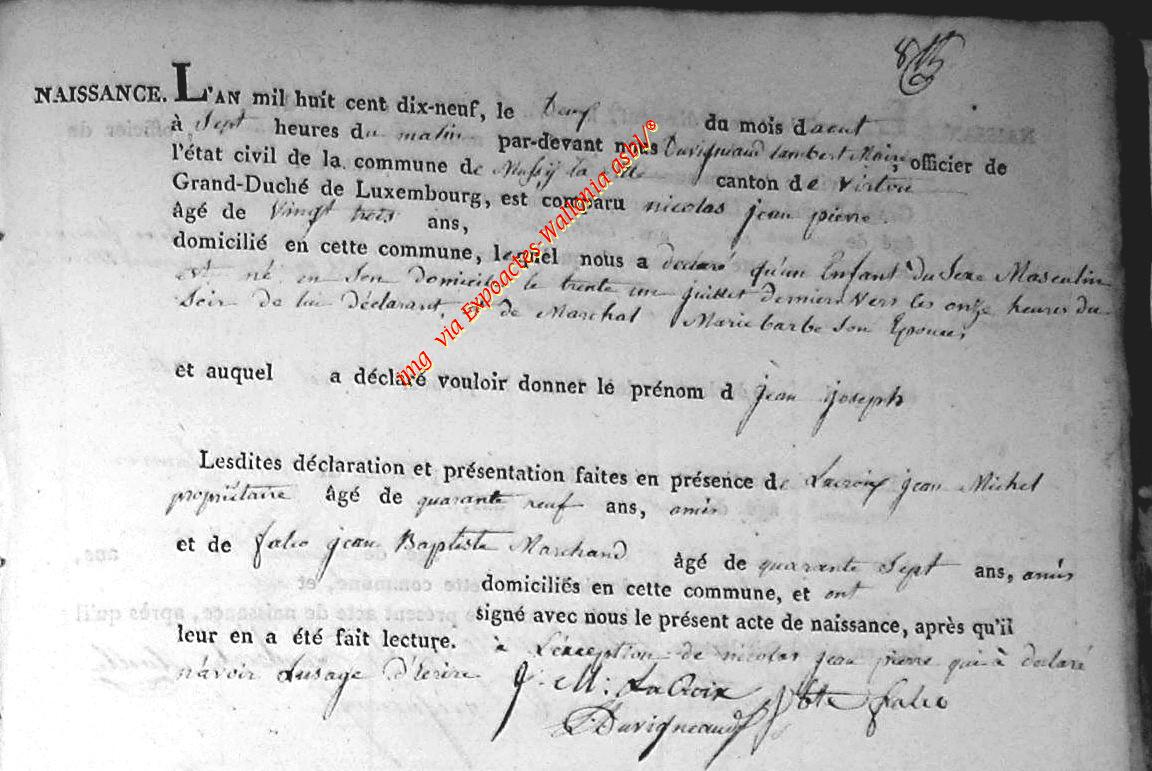 NAISSANCE. L'AN mil huit cent dix-neuf, le deux du mois d'aout
à Sept heures du matin par-devant nous Duvigneaud Lambert Maire, officier de
l'état civil de la commune de Mussy la ville canton de virton
Grand-Duché de Luxembourg, est comparu nicolas jean pierre
âgé de Vingt trois ans,
domicilié en cette commune, lequel nous a declaré qu'un Enfant du Sexe Masculin
est né en Son domicile le trente un juillet dernier Vers les onze heures du
Soir de lui déclarant, et de Marchal Marie barbe Son Epouse,
et auquel a déclaré vouloir donner le prénom d jean joseph
Lesdites déclaration et présentation faites en présence de Lacroix jean Michel
propriétaire âgé de quarante neuf ans, amis
et de falio jean Baptiste Marchand âgé de quarante Sept ans, amis
domiciliés en cette commune, et ont
signé avec nous le présent acte de naissance, après qu'il
leur en a été fait lecture. à L'exception de nicolas jean pierre qui à déclaré
n'avoir Lusage D'Ecrire
J: M: LaCroix J Bte falio
Duvigneaud
img via Expoactes-Wallonia asbl/©